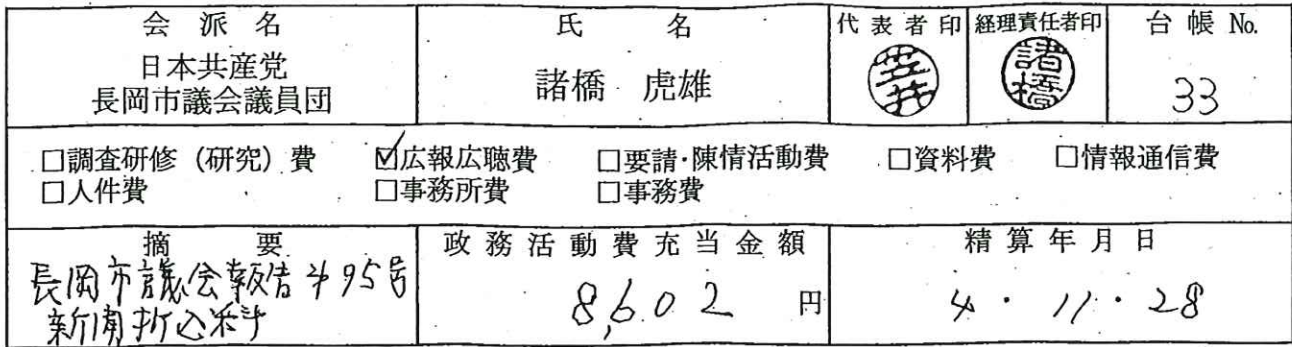 会派名 氏名 代表者印 経理責任者印 台帳No.
日本共産党
長岡市議会議員団 諸橋 虎雄 諸橋 33
□調査研修(研究)費 ☑広報広聴費 □要請・陳情活動費 □資料費 □情報通信費
□人件費 □事務所費 □事務費
摘要 政務活動費充当金額 精算年月日
長岡市議会報告第95号
新聞折込料 8,602円 4・11・28